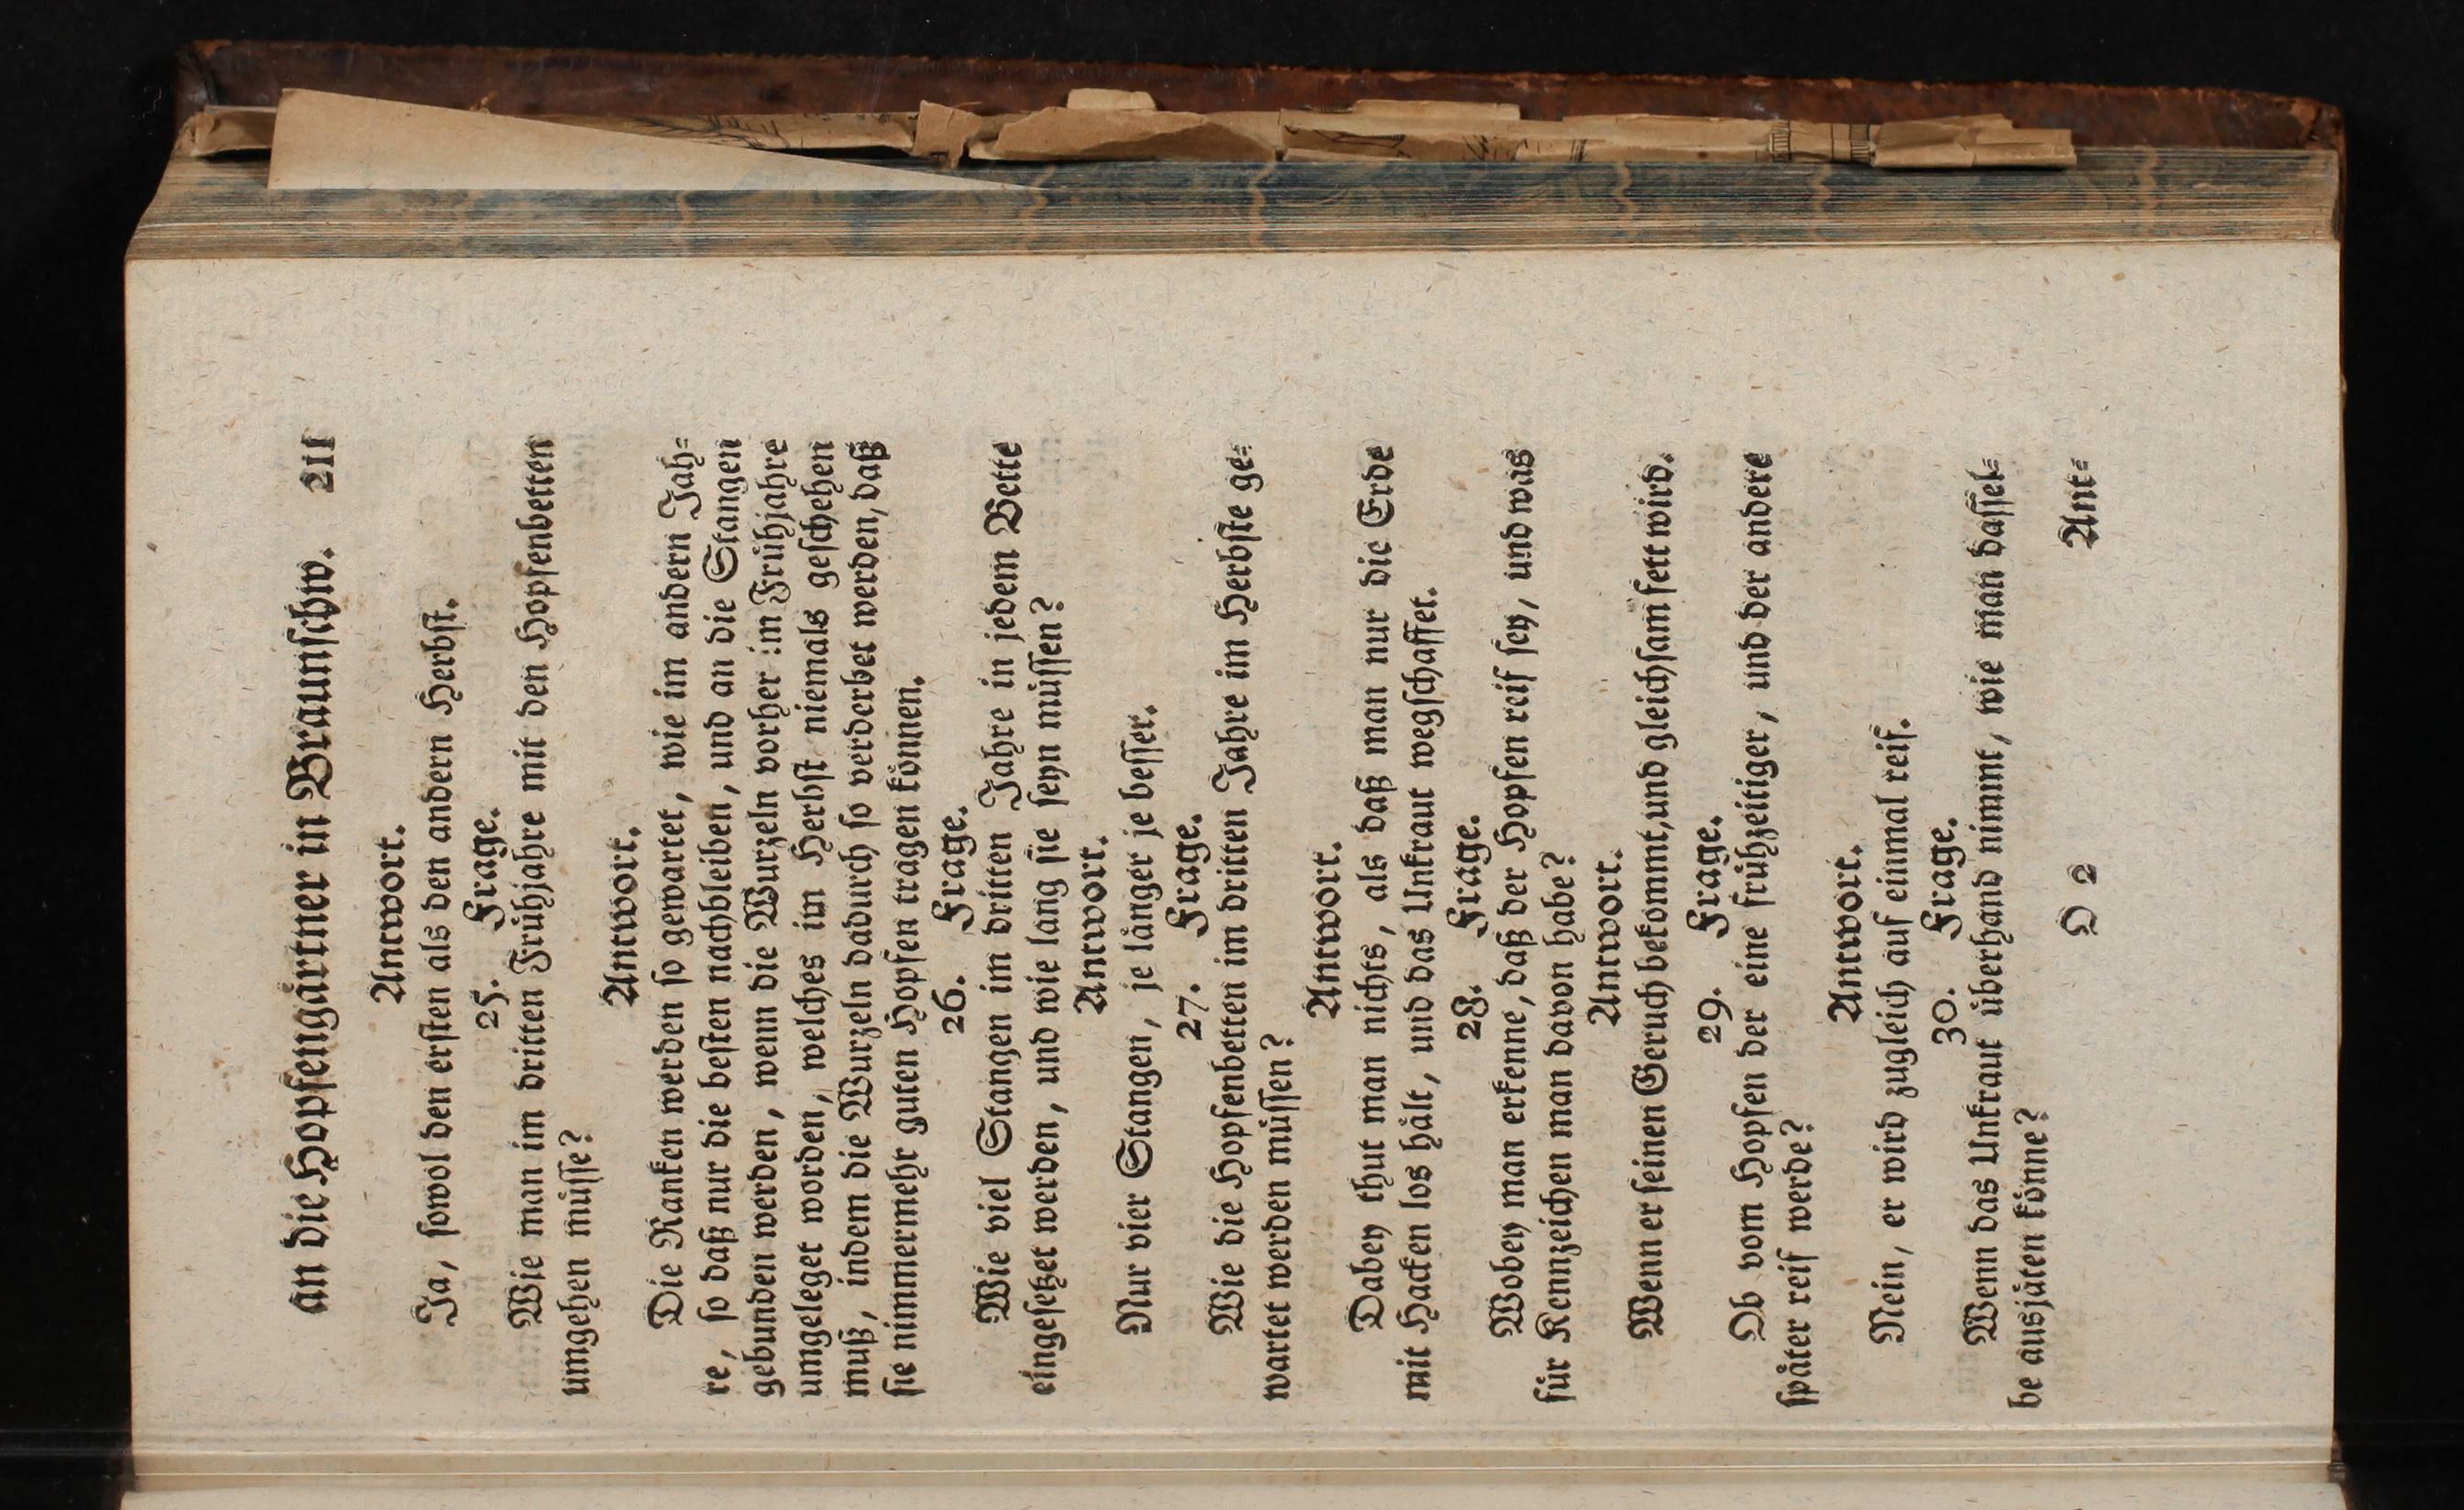 an die Hopfengårtner in Braunſchw. 211
Antwort.
Ja, ſowol den erſten als den andern Herbſt.
25. Frage.
Wie man im dritten Frůhjahre mit den Hopfenbetten
umgehen můſſe?
Antwort.
Die Ranken werden ſo gewartet, wie im andern Jah⸗
re, ſo daß nur die beſten nachbleiben, und an die Stangen
gebunden werden, wenn die Wurzeln vorher im Frůhjahre
umgeleget worden, welches im Herbſt niemals geſchehen
muß, indem die Wurzeln dadurch ſo verderbet werden, daß
ſie nimmermehr guten Hopfen tragen kőnnen.
26. Frage.
Wie viel Stangen im dritten Jahre in jedem Bette
eingeſetzet werden, und wie lang ſie ſeyn můſſen?
Antwort.
Nur vier Stangen, je långer je beſſer.
27. Frage.
Wie die Hopfenbetten im dritten Jahre im Herbſte ge⸗
wartet werden můſſen?
Antwort.
Dabey thut man nichts, als daß man nur die Erde
mit Hacken los hålt, und das Unkraut wegſchaffet.
28. Frage.
Wobey man erkenne, daß der Hopfen reif ſey, und was
fůr Kennzeichen man davon habe?
Antwort.
Wenn er ſeinen Geruch bekommt, und gleichſam fett wird.
29. Frage.
Ob vom Hopfen der eine frůhzeitiger, und der andere
ſpåter reif werde?
Antwort.
Nein, er wird zugleich auf einmal reif.
30. Frage.
Wenn das Unkraut ůberhand nimmt, wie man daſſel⸗
be ausjåten kőnne?
O 2 Ant⸗